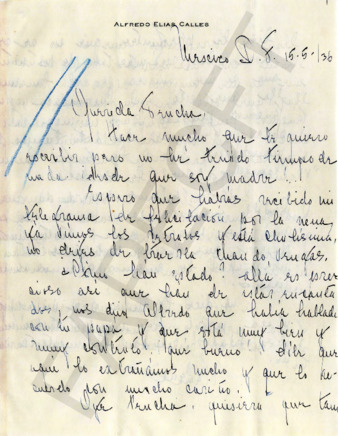 ALFREDO ELIAS CALLES
Mexico D. F. 15-5-/36
Querida Trucha.
Hace mucho que te quiero
escribir pero no he tenido tiempo de
nada desde que soy madre.
Espero que habrás recibido mi
telegrama de felicitación por la nena
ya vimos los retratos y está chulísima,
no dejes de traerla cuando vengas.
como han estado? allá es
así que han de estar encanta
dos, nos dijo Alfredo que había hablado
con tu papá y que está muy bien y
muy contento que bueno! dile que
aquí lo extrañamos mucho y que lo re-
cuerdo con mucho cariño.
Oye Trucha, quisiera que tam